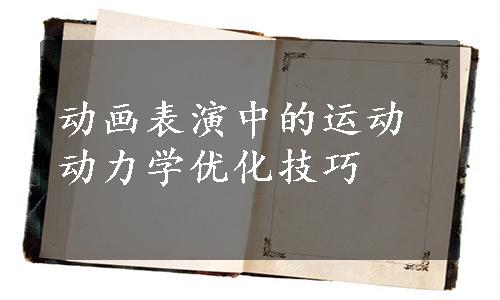 动画表演中的运动
动力学优化技巧